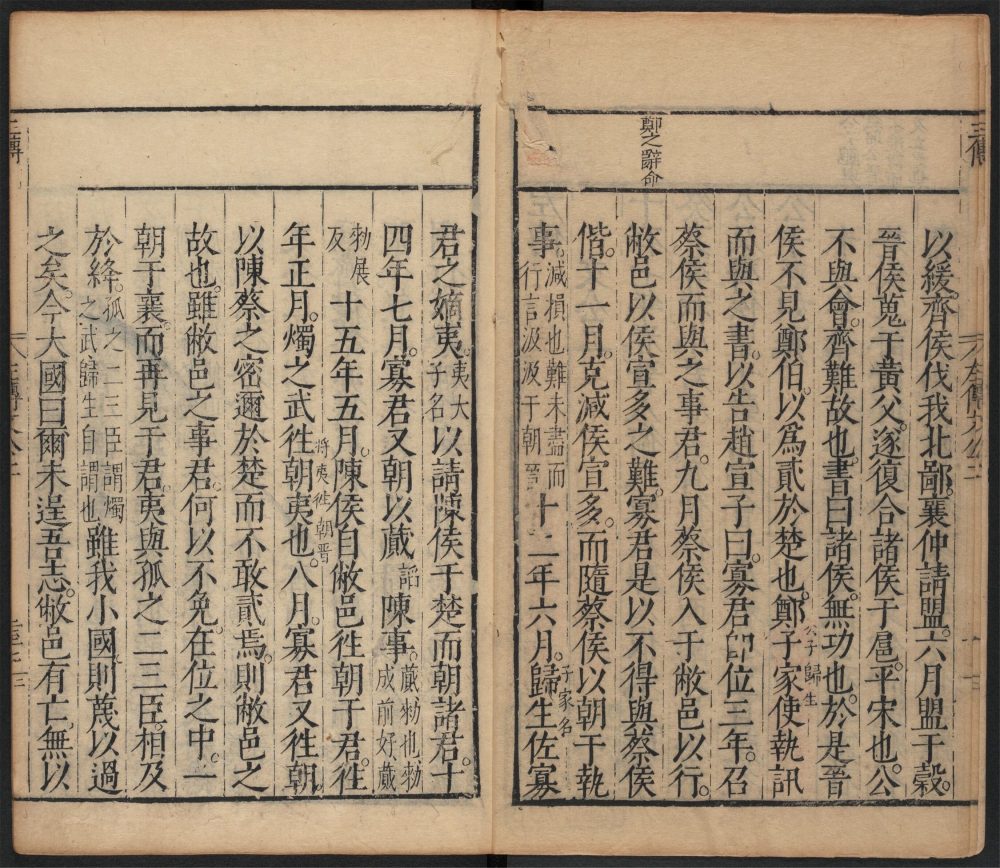 鄭之辭命
以緩齊侯伐我北鄙。襄仲請盟。六月盟于穀。
晉侯蒐于黃父。遂復合諸侯于扈。平宋也。公
不與會。齊難故也。書曰諸侯。無功也。於是晉
侯不見鄭伯。以爲貳於楚也。鄭子家公子歸生使執訊
而與之書。以告趙宣子曰。寡君卽位三年。召
蔡侯而與之事君。九月蔡侯入于敝邑以行。
敝邑以侯宣多之難。寡君是以不得與蔡侯
偕。十一月。克減侯宣多。而隨蔡侯以朝于執
事。減損也難未盡而行言汲汲于朝晉十二年六月。歸生子家名佐寡
君之嫡夷。夷大子名以請陳侯于楚而朝諸君。十
四年七月。寡君又朝以蕆諂陳事。蕆勑也勑成前好蕆
勑展反十五年五月。陳侯自敝邑徃朝于君。徃
年正月。燭之武徃朝夷也。將夷徃朝晉八月。寡君又徃朝。
以陳蔡之密邇於楚而不敢貳焉。則敝邑之
故也。雖敝邑之事君。何以不免。在位之中。一
朝于襄。而再見于君。夷與孤之二三臣。相及
於絳。孤之二三臣謂燭之武歸生自謂也雖我小國。則蔑以過
之矣。今大國曰爾未逞吾志。敝邑有亡。無以